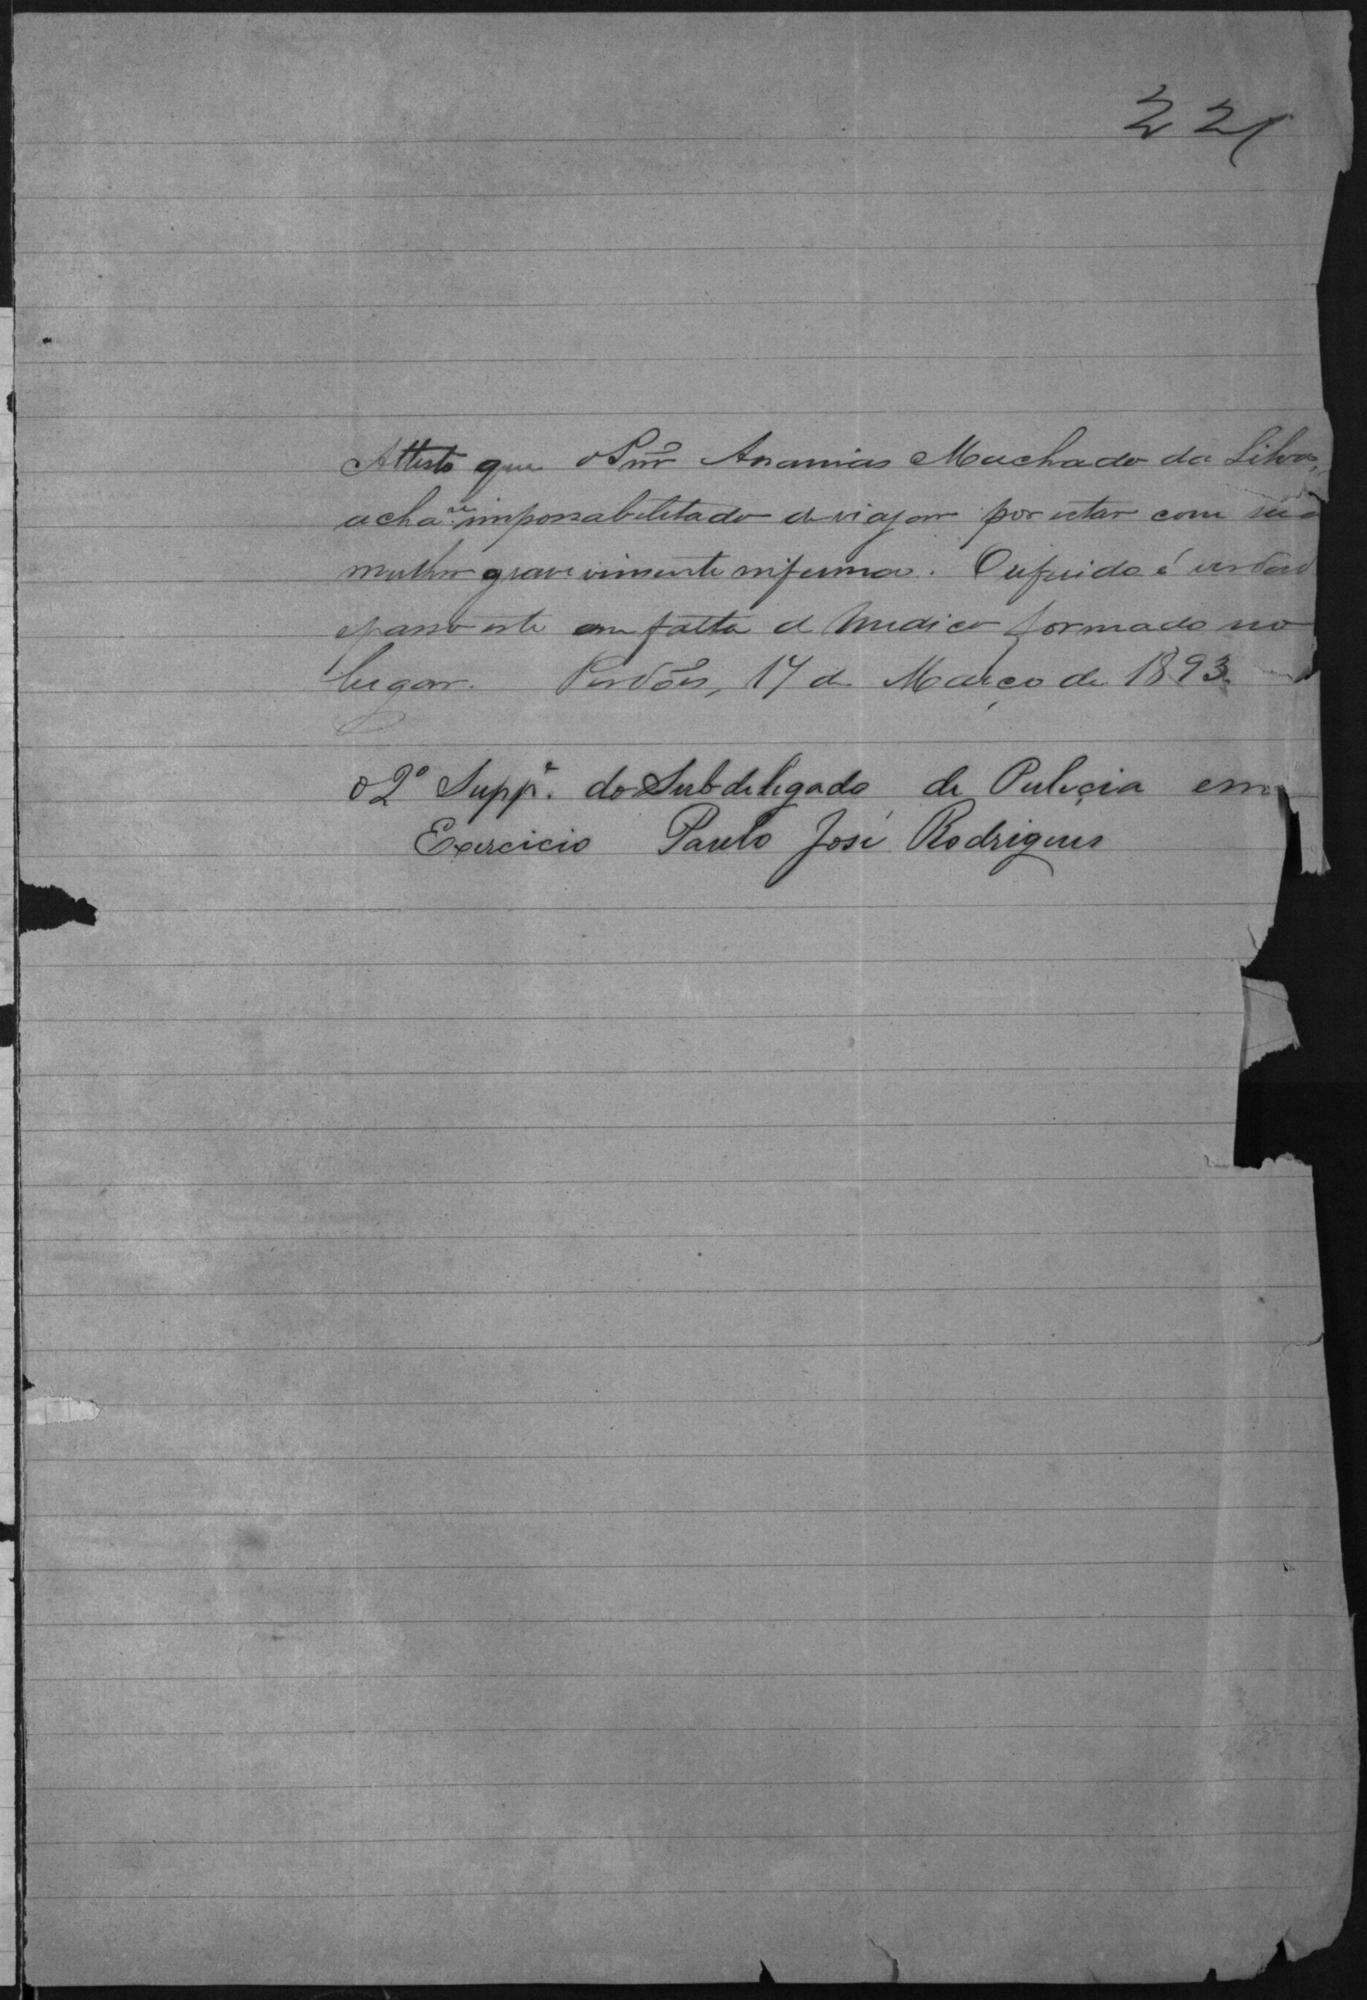 22
Attesto que o Snr Ananias Machado da Silva,
acha se impossabilitado de viajar por estar com sua
mulher gravevimente infirma. O refirido é verdad
e passo este em falta de Medico formado no
lugar. Perdões, 17 de Março de 1893.
o 2º Suppe. do Subdeligado de Puliçia em
Exercicio Paulo José Rodrigues